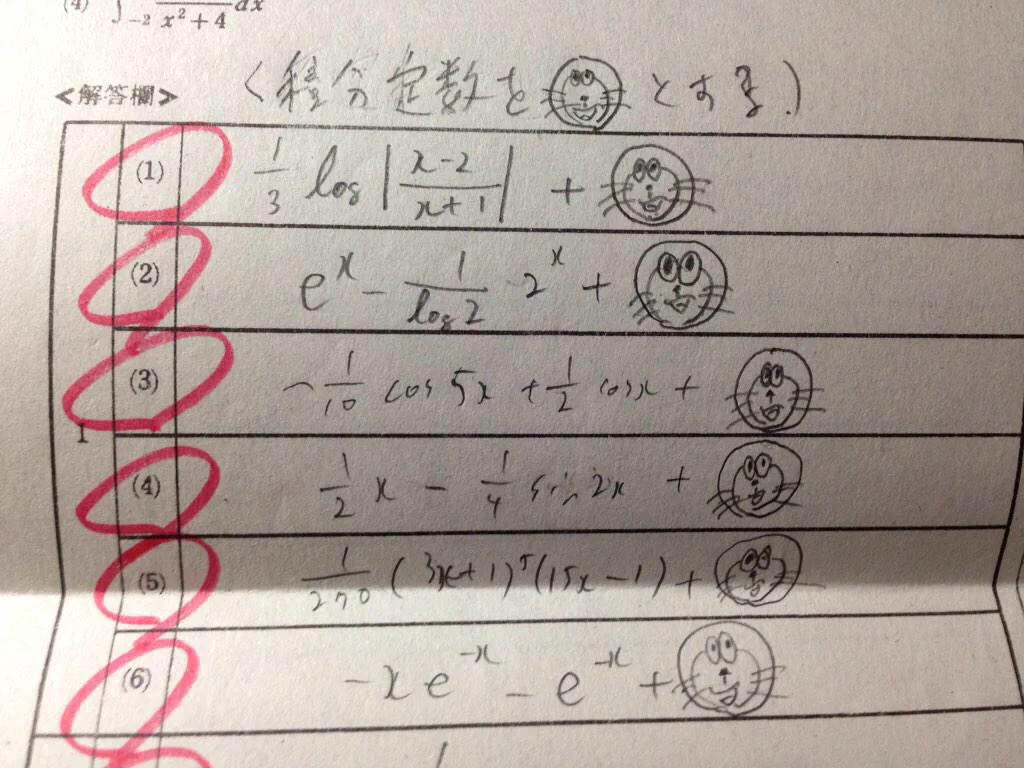 (4) ∫₋₂ x²+4 dx
<解答欄>
(積分定数を とする)
1
(1) 1/3 log|x-2/x+1| +
(2) eˣ - 1/log2 · 2ˣ +
(3) -1/10 cos5x + 1/2 cosx +
(4) 1/2 x - 1/4 sin2x +
(5) 1/270 (3x+1)⁵(15x-1) +
(6) -xe⁻ˣ - e⁻ˣ +